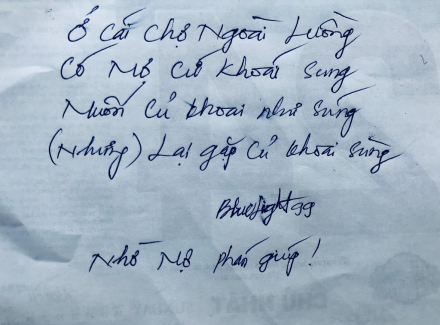 Ở cái chợ Ngoài Luồng
Có Mợ cứ khoái sung
Muốn củ khoai như súng
(Nhưng) Lại gặp củ khoai sùng
Bluelight99
Nhờ Mợ phán giùg!
CHỦ NHẬT